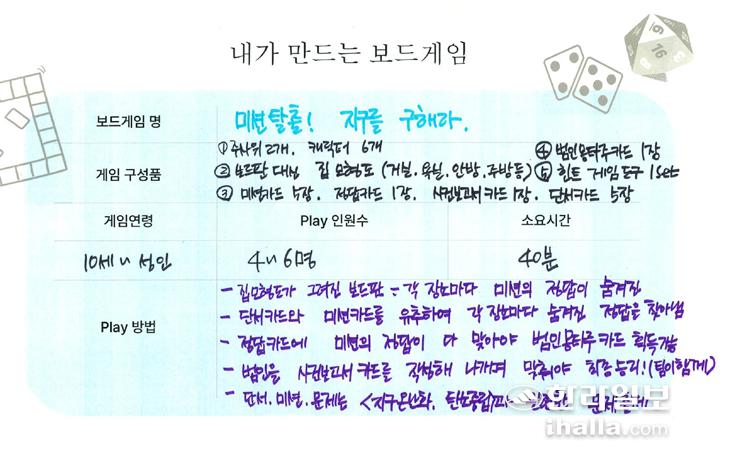 내가 만드는 보드게임
보드게임 명
미션탈출! 지구를 구해라.
게임 구성품
① 주사위 2개, 캐릭터 6개 ④ 범인몽타주카드 1장
② 보드판 대신 집 모형도 (거실, 욕실, 안방, 주방 등) ⑤ 힌트 게임도구 1set
③ 미션카드 5장, 정답카드 1장, 사건보고서 카드 1장, 단서카드 5장
게임연령 Play 인원수 소요시간
10세~성인 4~6명 40분
Play 방법
- 집모형도가 그려진 보드판 = 각 장소마다 미션의 정답이 숨겨진
- 단서카드와 미션카드를 유추하여 각 장소마다 숨겨진 정답을 찾아냄
- 정답카드에 미션의 정답이 다 맞아야 범인몽타주 카드 획득가능
- 범인을 사건보고서 카드를 작성해 나가며 맞춰야 최종승리! (팀이 함께)
- 단서, 미션, 문제는 <지구온난화, 탄소중립
한라일보
ihalla.com
6
9
16